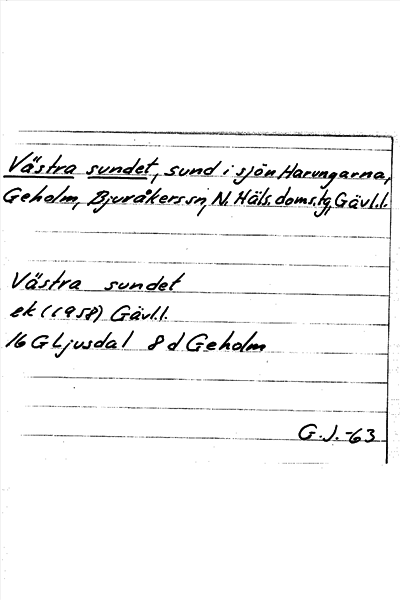 Västra sundet, sund i sjön Harungarna,
Geholm, Bjuråkers sn, N. Häls. doms.tg, Gävl.l.
Västra sundet
ek (1958) Gävl.l.
16 G Ljusdal 8 d Geholm
G.J.-63